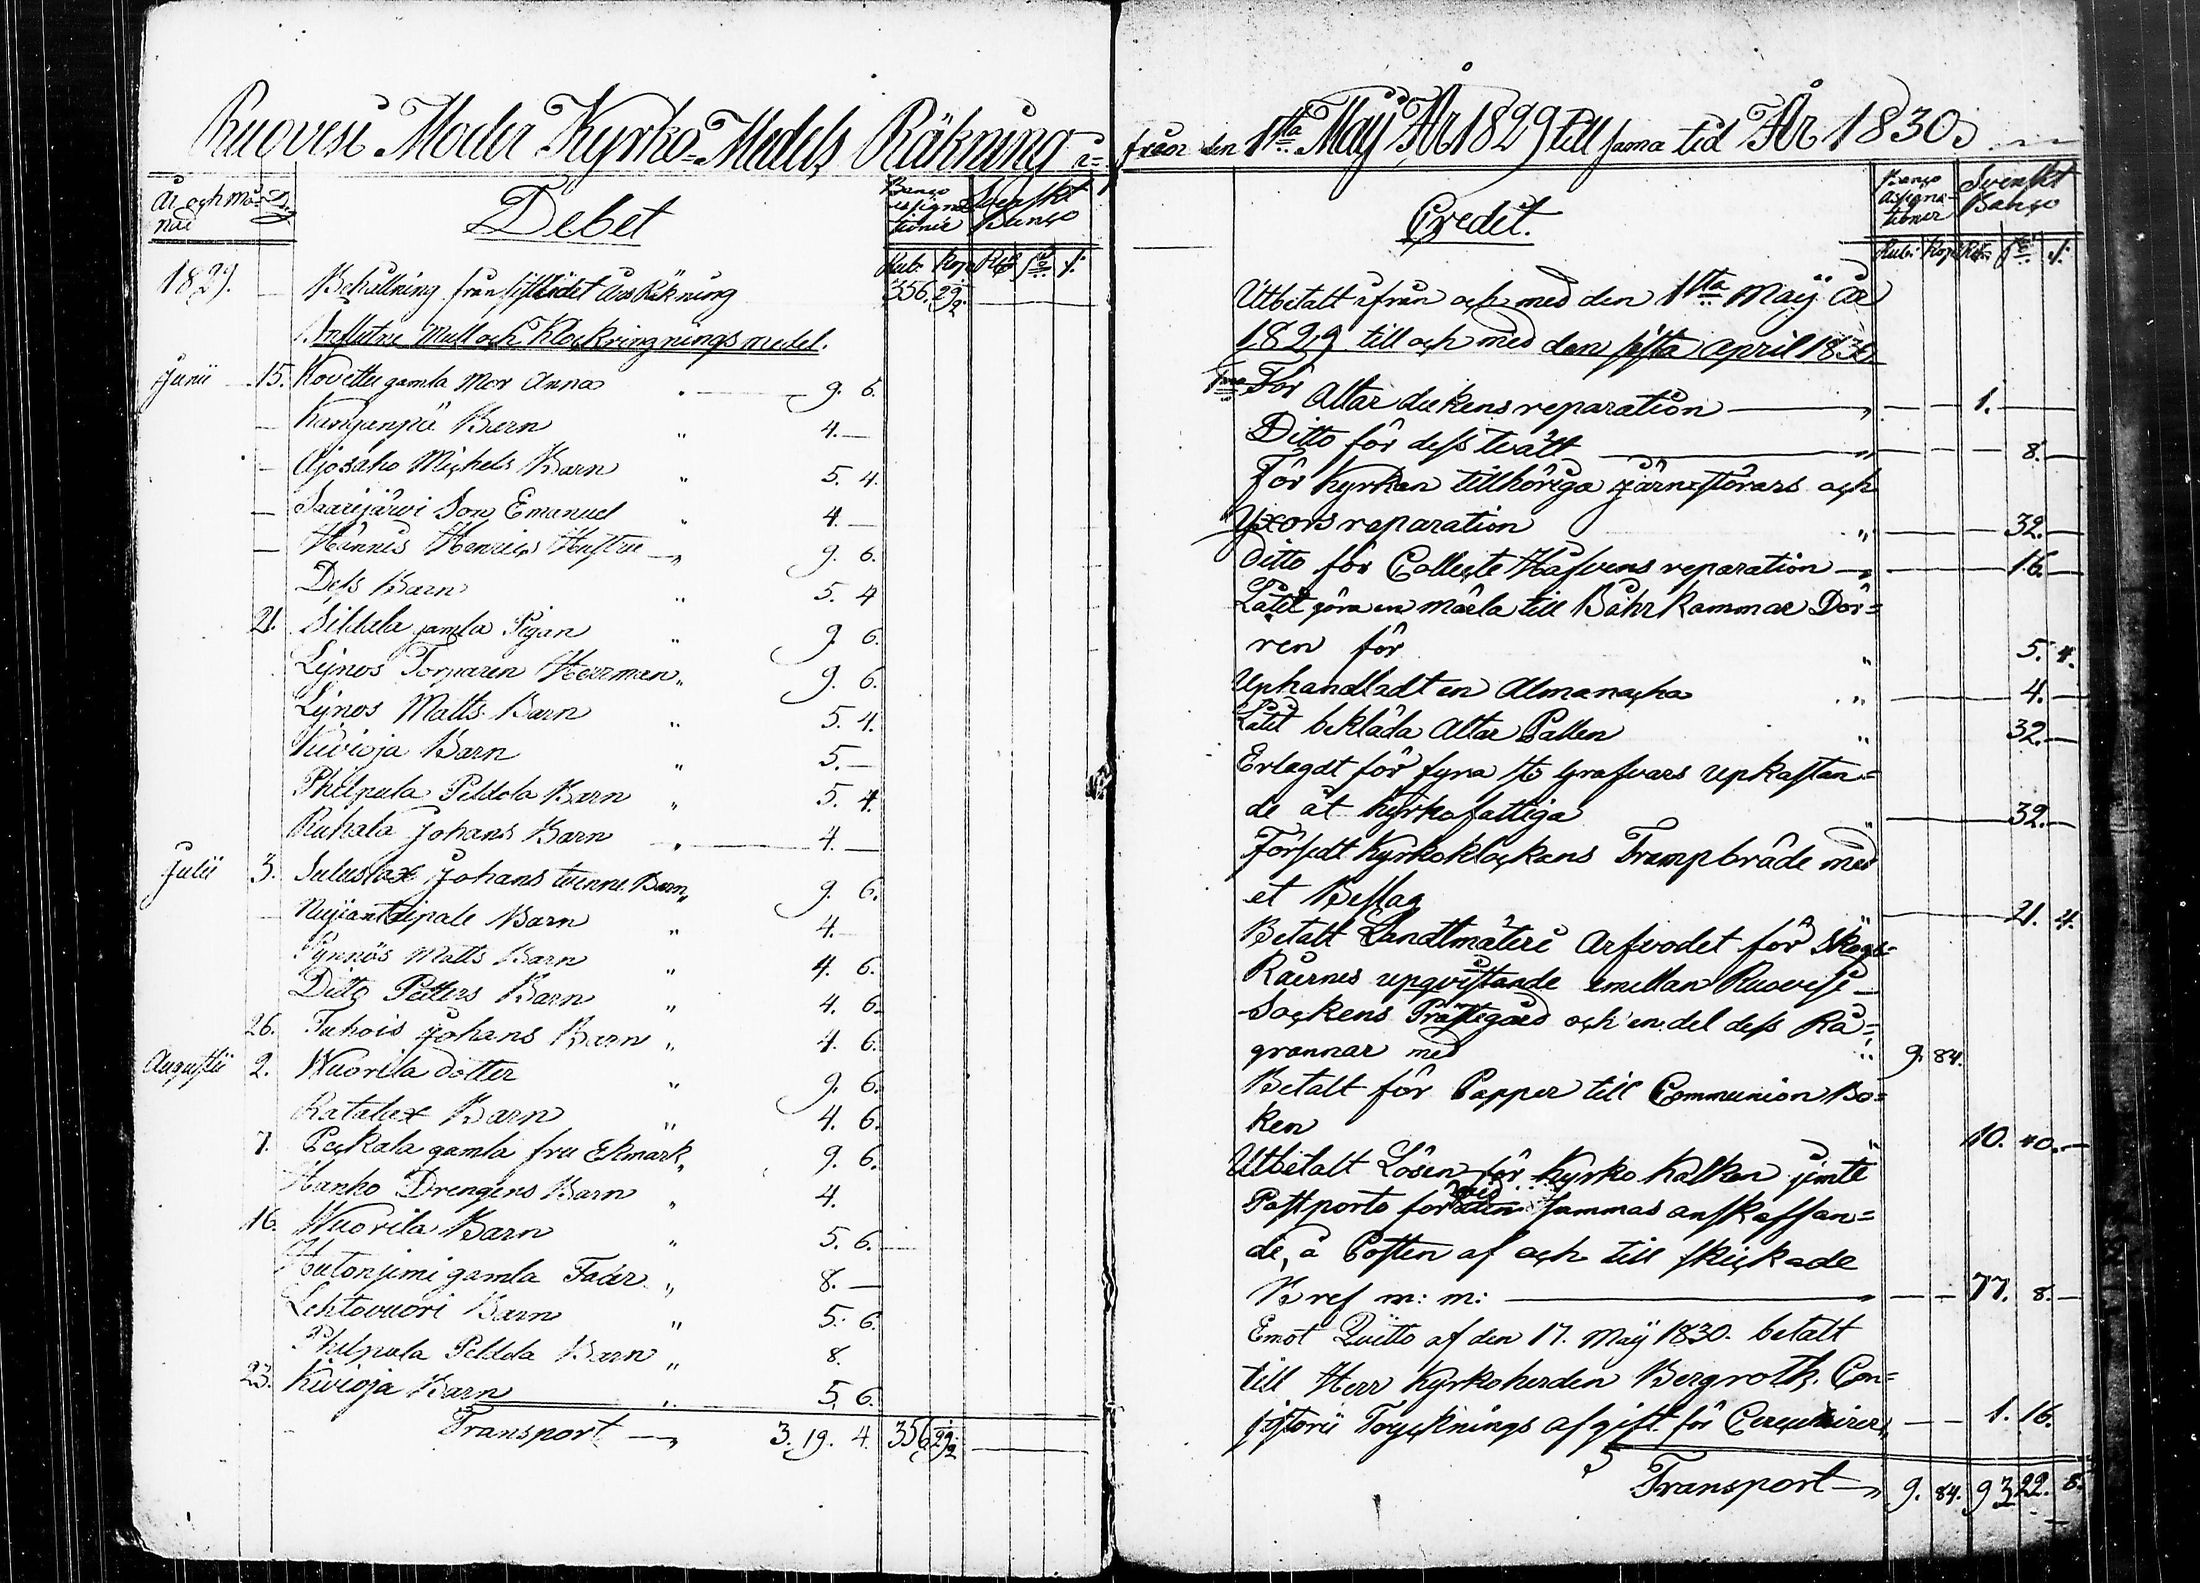 Ruovesi Moder Kyrko-Medels Räkning i-
År och Må-
nad
Debet
Banco
assigna-
tioner
Svenskt
Banco
Rub: Kop: Rd sk: r:
1829. Behållning från sistledet års Räkning 356. 29 1/2
Influtne Mull och Klockringnings medel.
Junii 15. Kovettu gamla Mor Anna 9. 6.
Barn " 4. —
Ajosaho Michels Barn " 5. 4.
Saarijärvi Son Emanuel " 4. —
Hännis Henrics Hustru — " 9. 6.
Dess Barn " 5. 4
21. Sillila gamla Pigan " 9. 6.
Lijnes Torparen Herrman " 9. 6.
Lijnes Matts Barn " 5. 4.
Kivioja Barn " 5. —
Philpula Peldola Barn " 5. 4.
Ruhala Johans Barn " 4. —
Julii 3. Johans tvenne Barn " 9. 6.
Barn " 4. —
Pynnös Matts Barn " 4. 6.
Ditto Petters Barn " 4. 6.
26. Tuhois Johans Barn " 4. 6.
Augustii 2. Wuorila dotter " 9. 6.
Barn " 4. 6.
7. Peckala gamla fru Ekmark " 9. 6.
Hanho Drengens Barn " 4.
16. Wuorila Barn " 5. 6.
gamla Fader " 8. —
Lehtovuori Barn " 5. 6.
Philpula Peldola Barn " 8.
23. Kivioja Barn " 5. 6.
Transport — " 3. 19. 4. 356. 29 1/2
från den 1sta Maij År 1829 till sama tid År 1830.
Credit.
Banco
Assigna-
tioner
Svenskt
Banco
Rub: Kop: Rd: sk: r:
Utbetalt ifrån och med den 1sta Maij År
1829 till och med den sista April 1830
För Altar dukens reparation — " 1. —
Ditto för dess tvätt — " 8. —
För Kyrkan tillhöriga järnstörars och
Yxors reparation " 32. —
Ditto för Collecte Håfvens reparation — " 16. —
Låtit göra en märla till Båhrkammar Dör=
ren för " 5. 4.
Uphandladt en Almanacha " 4. —
Låtit bekläda Altar Pallen " 32. —
Erlagdt för fyra st Grafvars upkastan=
de åt kyrkofattiga " 32. —
Försedt Kyrkoklockans Trampbräde med
et Beslag 21. 4.
Betalt Landtmäteri Arfvodet för Skogs=
Råernes upqvistande emellan Ruovesi
Sockens Prästegård och en del dess Rå=
grannar med " 9. 84.
Betalt för Papper till Communion Bo=
ken " 10. 40. —
Utbetalt Lösen för Kyrko Kalken jemte
Postporto för vid sammas anskaffan=
de, å Posten af och till skickade
Bref m: m: — " 77. 8. —
Emot Qvitto af den 17. Maij 1830. betalt
till Herr Kyrkoherden Bergroth, Con=
sistorii Trycknings afgift för Circulairer " 1. 16.
Transport — " 9. 84. 93 22. 8.